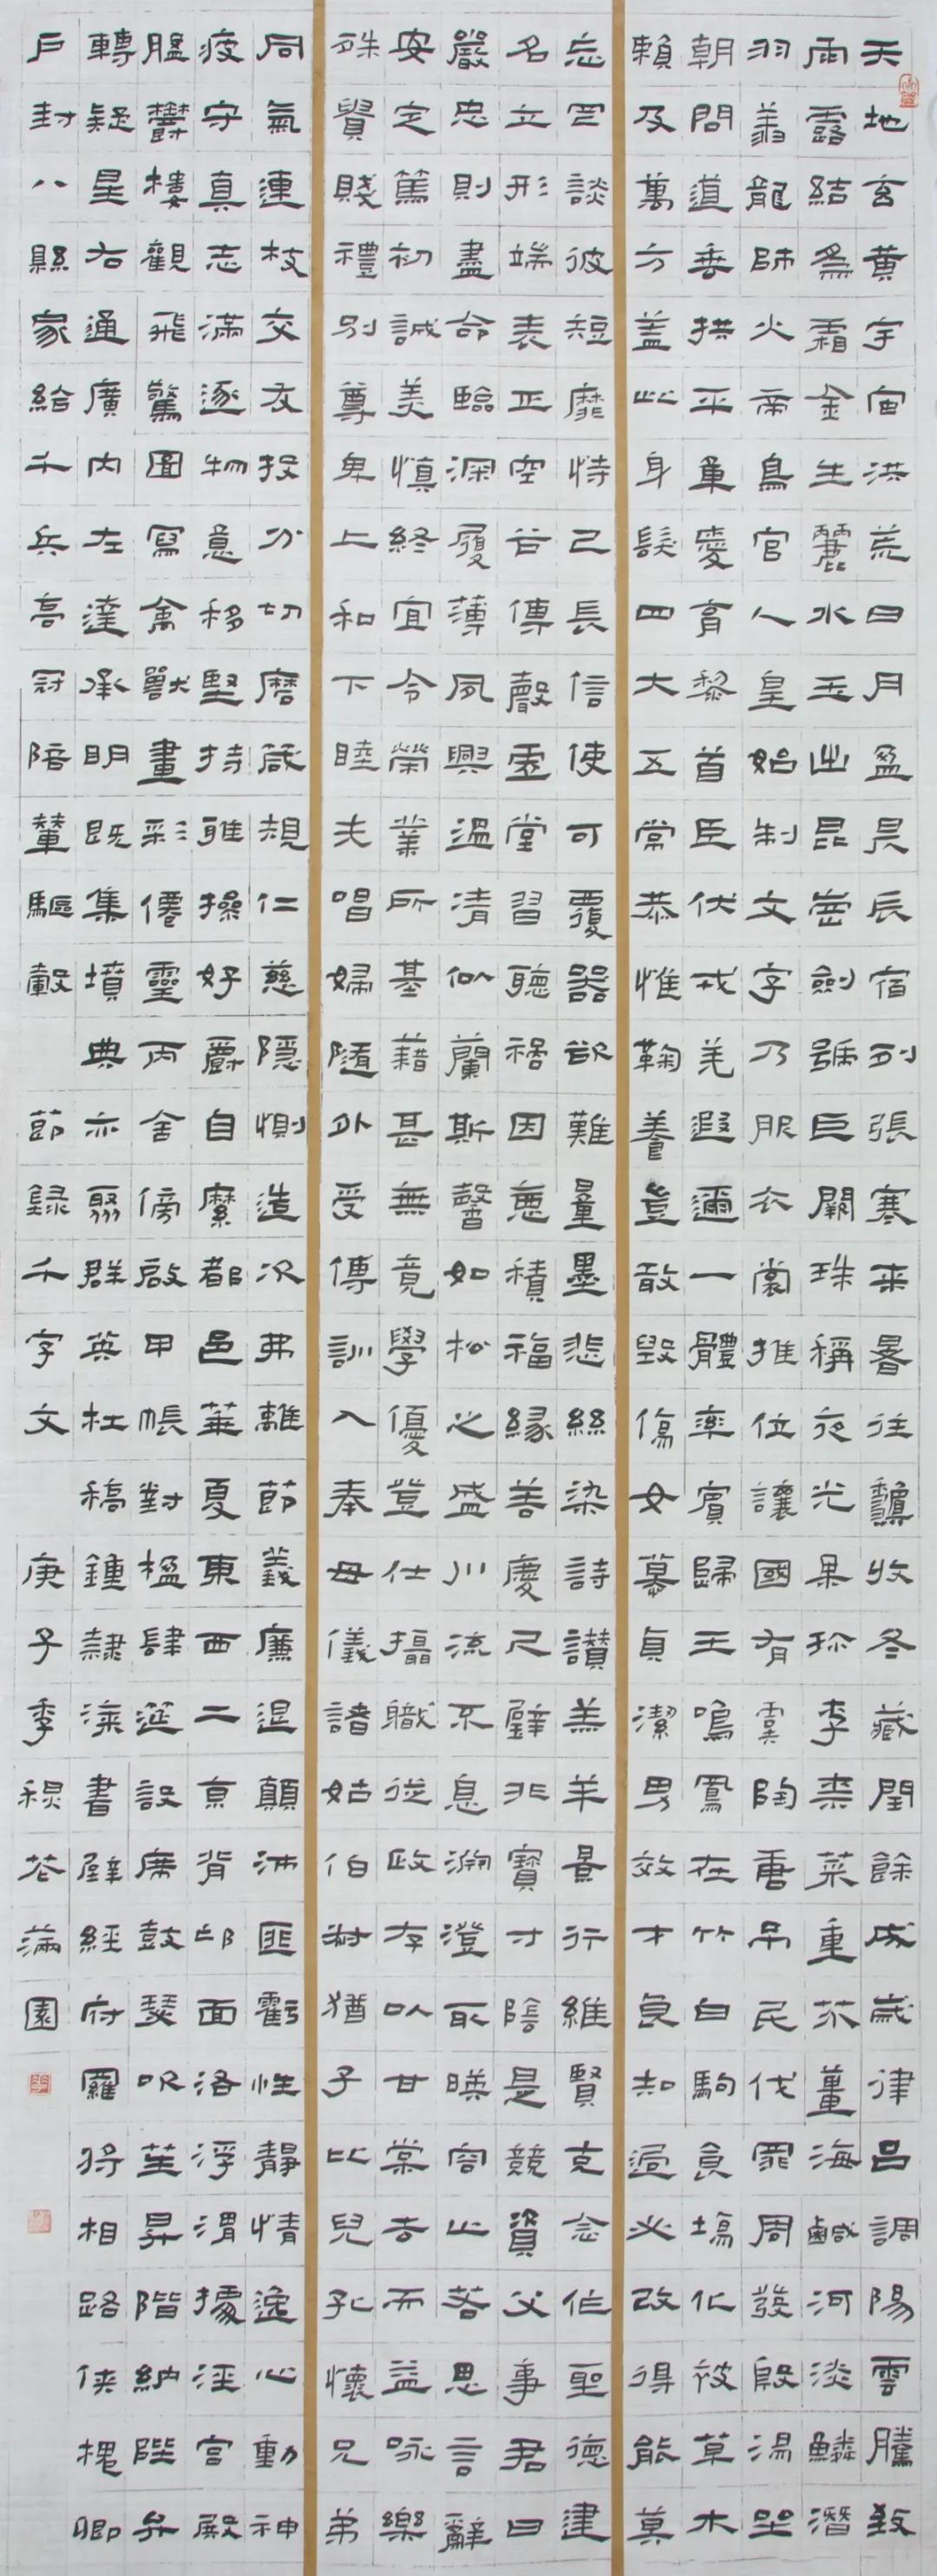 天地玄黃宇宙洪荒日月盈昃辰宿列張寒來暑往龝收冬藏閏餘成歲律呂調陽雲騰致
雨露結爲霜金生麗水玉出昆崗劍號巨闕珠稱夜光果珍李柰菜重芥薑海鹹河淡鱗潛
羽翔龍師火帝鳥官人皇始制文字乃服衣裳推位讓國有虞陶唐吊民伐罪周發殷湯坐
朝問道垂拱平章愛育黎首臣伏戎羌遐邇一體率賓歸王鳴鳳在竹白駒食場化被草木
賴及萬方蓋此身髮四大五常恭惟鞠養豈敢毀傷女慕貞潔男效才良知過必改得能莫
忘罔談彼短靡恃己長信使可覆器欲難量墨悲絲染詩讚羔羊景行維賢克念作聖德建
名立形端表正空谷傳聲虛堂習聽禍因惡積福緣善慶尺璧非寶寸陰是競資父事君曰
嚴忠則盡命臨深履薄夙興溫清似蘭斯馨如松之盛川流不息淵澄取暎容止若思言辭
安定篤初誠美慎終宜令榮業所基藉甚無竟學優登仕攝職從政存以甘棠去而益詠樂
殊貴賤禮別尊卑上和下睦夫唱婦隨外受傅訓入奉母儀諸姑伯叔猶子比兒孔懷兄弟
同氣連枝交友投分切磨箴規仁慈隱惻造次弗離節義廉退顛沛匪虧性靜情逸心動神
疲守真志滿逐物意移堅持雅操好爵自縻都邑華夏東西二京背邙面洛浮渭據涇宮殿
盤鬱樓觀飛驚圖寫禽獸畫彩僊靈丙舍傍啟甲帳對楹肆筵設席鼓瑟吹笙昇階納陛弁
轉疑星右通廣內左達承明既集墳典亦聚群英杜稿鍾隸漆書壁經府羅將相路俠槐卿
戶封八縣家給千兵高冠陪輦驅轂 節録千字文 庚子季花滿園